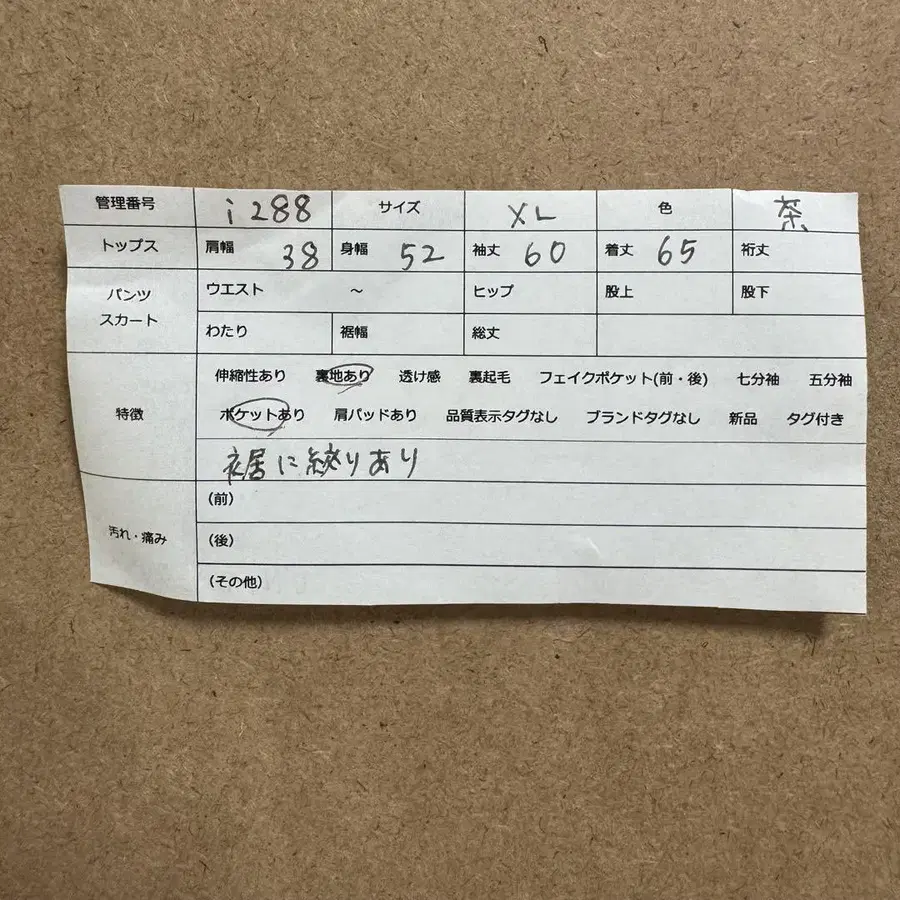 管理番号 i288 サイズ XL 色 茶
トップス 肩幅 38 身幅 52 袖丈 60 着丈 65 裄丈
パンツ スカート ウエスト ～ ヒップ 股上 股下
わたり 裾幅 総丈
特徴 伸縮性あり 裏地あり 透け感 裏起毛 フェイクポケット(前・後) 七分袖 五分袖
ポケットあり 肩パッドあり 品質表示タグなし ブランドタグなし 新品 タグ付き
裾に絞りあり
汚れ・痛み (前)
(後)
(その他)